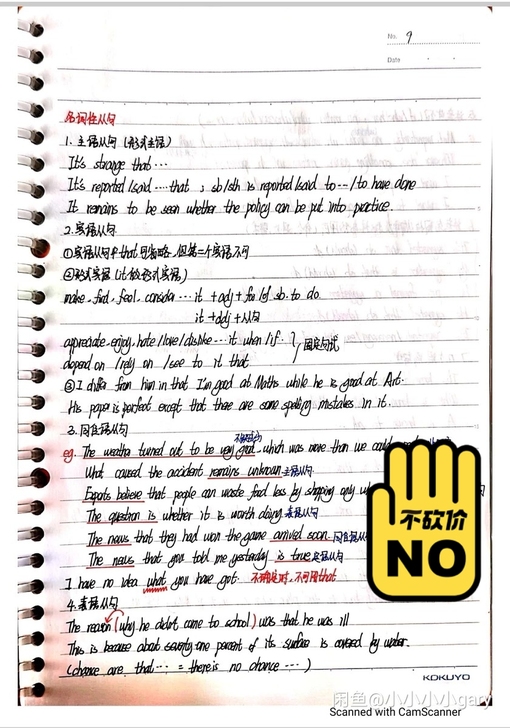 No. 9
Date
名词性从句
1. 主语从句（形式主语）
It's strange that ...
It's reported/said ... that ; sb/sth is reported/said to --- / to have done
It remains to be seen whether the policy can be put into practice.
2. 宾语从句
①宾语从句中that可省略，但第二个宾语不可
②形式宾语（it做形式宾语）
make, find, feel, consider ... it + adj + for/of sb. to do
it + adj + 从句
appreciate, enjoy, hate/love/dislike ... it when/if. } 固定句式
depend on / rely on / see to it that
③ I differ from him in that I'm good at Maths while he is good at Art.
His paper is perfect except that there are some spelling mistakes in it.
3. 同位语从句
eg. The weather turned out to be very good, which was more than we could
What caused the accident remains unknown 主语从句
Experts believe that people can waste food less by shopping only
The question is whether it is worth doing 表语从句
The news that they had won the game arrived soon. 同位语从句
The news that you told me yesterday is true 定语从句
I have no idea what you have got. 不确定时，不可用that
4. 表语从句
The reason (why he didn't come to school) was that he was ill
This is because about seventy-one percent of its surface is covered by water.
(chance are that ... = there is no chance ...)
不砍价
NO
KOKUYO
闲鱼@小小小小gary
Scanned with CamScanner